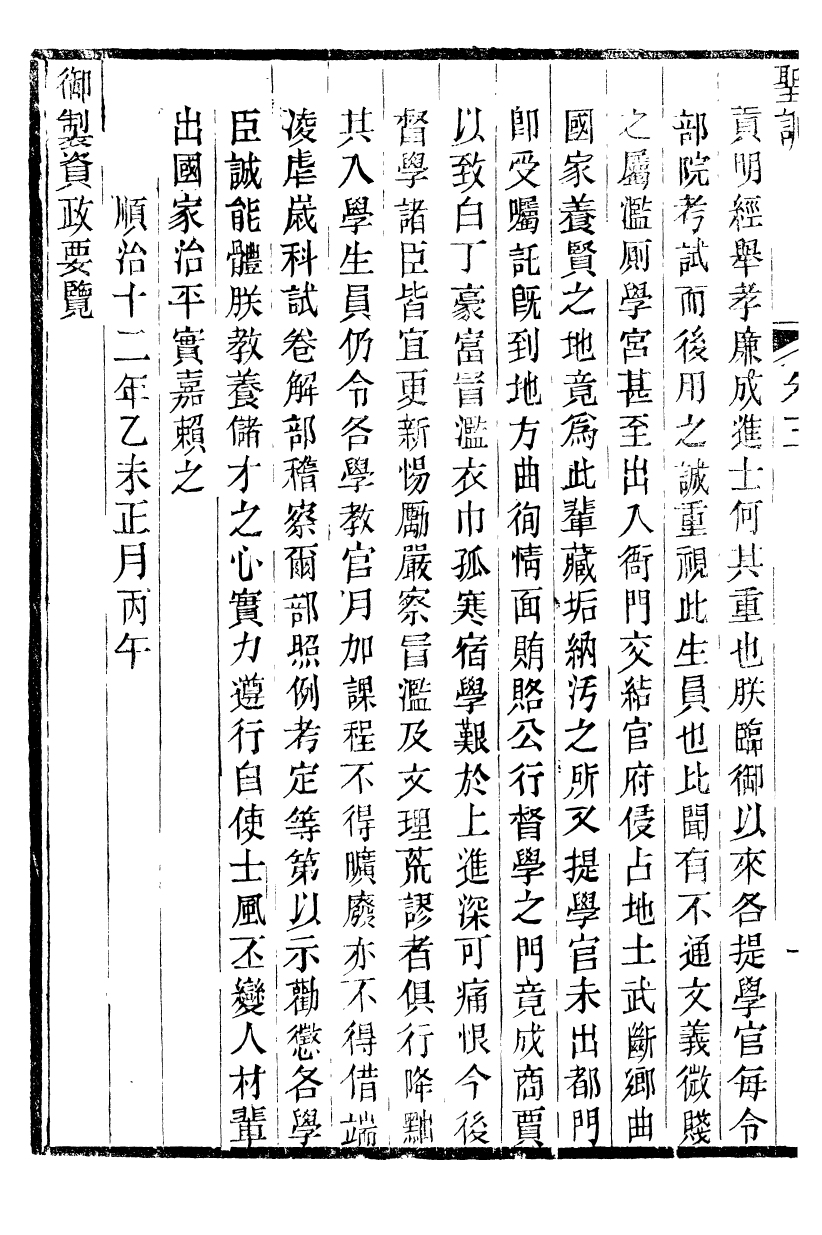 聖訓
貢明經舉孝廉成進士何其重也朕臨御以來各提學官每令
部院考試而後用之誠重視此生員也比聞有不通文義微賤
之屬濫廁學宮甚至出入衙門交結官府侵占地土武斷鄉曲
國家養賢之地竟爲此輩藏垢納汚之所又提學官未出都門
卽受囑託旣到地方曲徇情面賄賂公行督學之門竟成商賈
以致白丁豪富冒濫衣巾孤寒宿學艱於上進深可痛恨今後
督學諸臣皆宜更新惕勵嚴察冒濫及文理荒謬者俱行降黜
其入學生員仍令各學教官月加課程不得曠廢亦不得借端
凌虐歲科試卷解部稽察爾部照例考定等第以示勸懲各學
臣誠能體朕教養儲才之心實力遵行自使士風丕變人材輩
出國家治平實嘉賴之
順治十二年乙未正月丙午
御製資政要覽